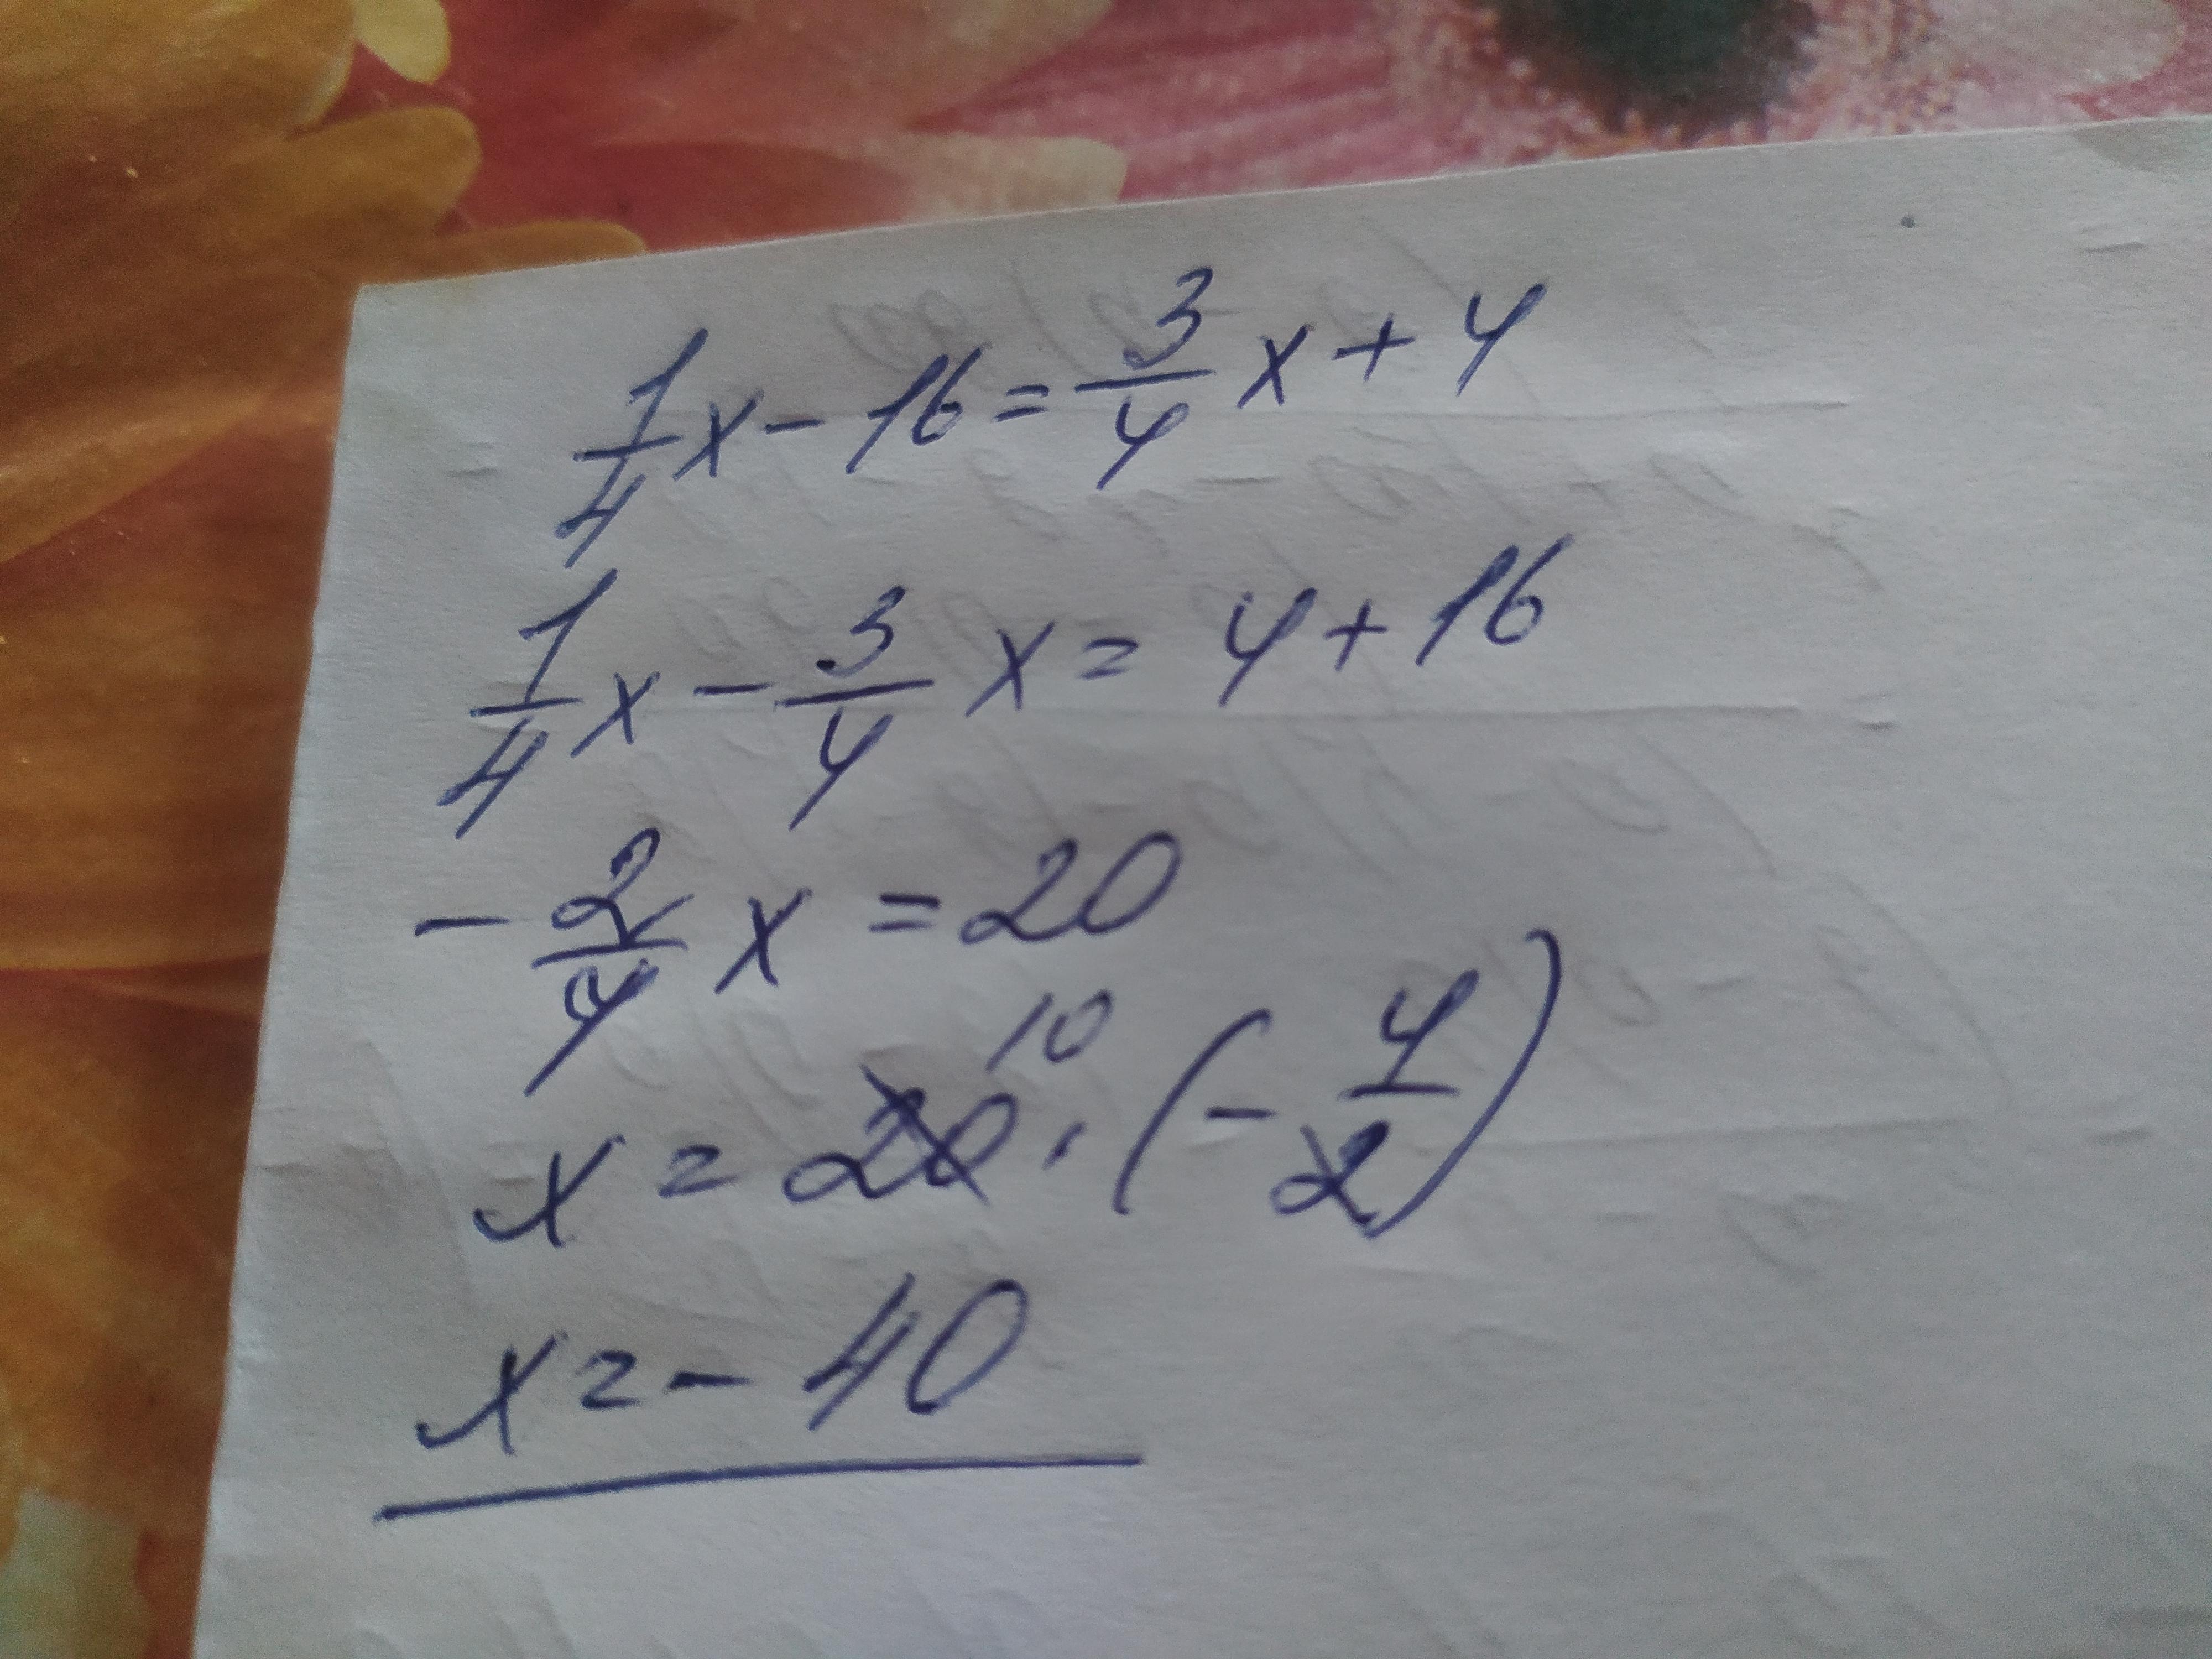 1/4 x - 16 = 3/4 x + 4
1/4 x - 3/4 x = 4 + 16
- 2/4 x = 20
10
x = 20 · (- 4/2)
x = - 40